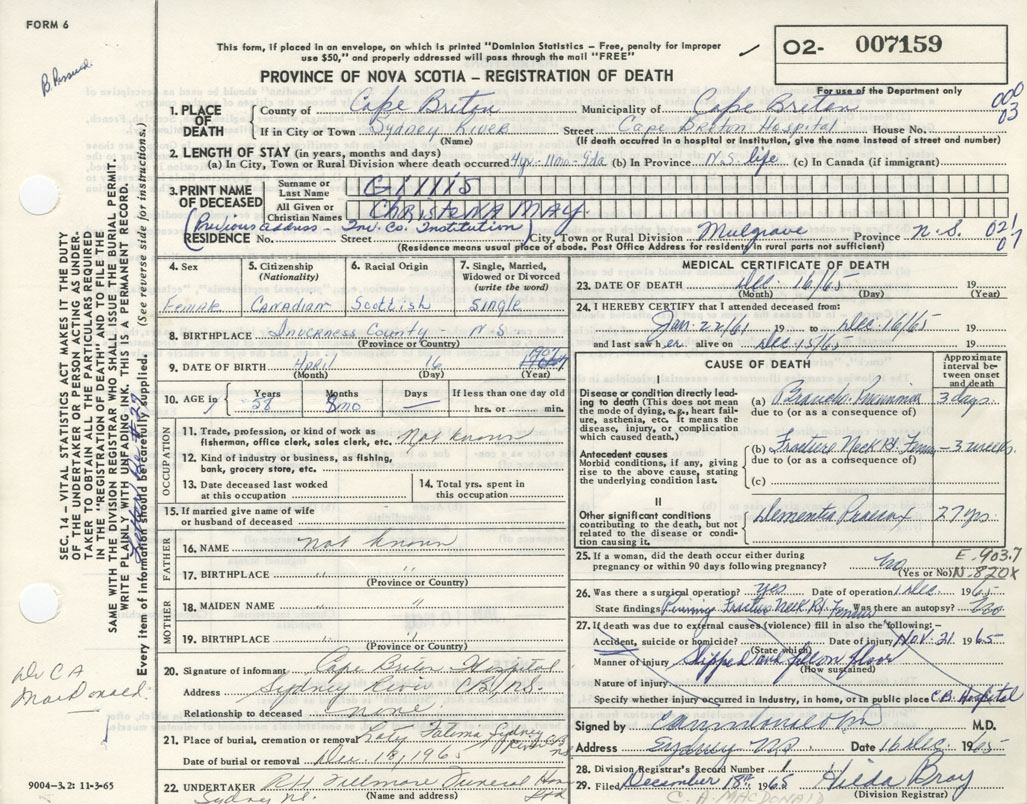 FORM 6
B. Pssued.
This form, if placed in an envelope, on which is printed "Dominion Statistics – Free, penalty for improper
use $50," and properly addressed will pass through the mail "FREE"
O2- 007159
PROVINCE OF NOVA SCOTIA – REGISTRATION OF DEATH
For use of the Department only
000
03
1. PLACE OF DEATH
County of Cape Breton Municipality of Cape Breton
If in City or Town Sydney River Street Cape Breton Hospital House No.
(Name) (If death occurred in a hospital or institution, give the name instead of street and number)
2. LENGTH OF STAY (in years, months and days)
(a) In City, Town or Rural Division where death occurred 4yr-11mo-9da (b) In Province N.S. life (c) In Canada (if immigrant)
3. PRINT NAME OF DECEASED
Surname or Last Name Gillis
All Given or Christian Names CHRISTENA MAY.
(Previous address - Inv. Co. Institution)
RESIDENCE No. Street City, Town or Rural Division Mulgrave Province N.S.
(Residence means usual place of abode. Post Office Address for residents in rural parts not sufficient)
4. Sex
Female
5. Citizenship
(Nationality)
Canadian
6. Racial Origin
Scottish
7. Single, Married, Widowed or Divorced
(write the word)
Single
8. BIRTHPLACE Inverness County - N.S.
(Province or Country)
9. DATE OF BIRTH April 16
(Month) (Day) (Year)
10. AGE in Years Months Days If less than one day old
58 8mo — hrs. or min.
OCCUPATION
11. Trade, profession, or kind of work as
fisherman, office clerk, sales clerk, etc. Not known
12. Kind of industry or business, as fishing,
bank, grocery store, etc.
13. Date deceased last worked
at this occupation
14. Total yrs. spent in
this occupation
15. If married give name of wife
or husband of deceased
FATHER
16. NAME not known
17. BIRTHPLACE " "
(Province or Country)
MOTHER
18. MAIDEN NAME " "
19. BIRTHPLACE " "
(Province or Country)
20. Signature of informant Cape Breton Hospital
Address Sydney River CB NS.
Relationship to deceased none
21. Place of burial, cremation or removal Lady Fatima Sydney
Date of burial or removal Dec. 18/1965
22. UNDERTAKER R H Fillmore Funeral Home Ltd
Sydney NS. (Name and address)
MEDICAL CERTIFICATE OF DEATH
23. DATE OF DEATH Dec. 16/65 19
(Month) (Day) (Year)
24. I HEREBY CERTIFY that I attended deceased from:
Jan. 22/61 19 to Dec. 16/65 19
and last saw her alive on Dec 15/65 19
CAUSE OF DEATH
Approximate interval between onset and death
I
Disease or condition directly leading to death (This does not mean the mode of dying, e.g., heart failure, asthenia, etc. It means the disease, injury, or complication which caused death.)
(a) Broncho Pneumonia 3 days
due to (or as a consequence of)
Antecedent causes
Morbid conditions, if any, giving rise to the above cause, stating the underlying condition last.
(b) Fracture Neck Rt. Femur – 3 weeks
due to (or as a consequence of)
(c)
II
Other significant conditions contributing to the death, but not related to the disease or condition causing it.
Dementia Praecox 27 yrs.
25. If a woman, did the death occur either during
pregnancy or within 90 days following pregnancy? No
(Yes or No)
E. 903.7
N. 820X
26. Was there a surgical operation? yes Date of operation 1 Dec. 1965
State findings Pinning Fracture Neck Rt. Femur Was there an autopsy? No
27. If death was due to external causes (violence) fill in also the following:–
Accident, suicide or homicide? Date of injury Nov. 21 1965
(State which)
Manner of injury Slipped and fell on floor
(How sustained)
Nature of injury
Specify whether injury occurred in Industry, in home, or in public place C.B. Hospital
Signed by M.D.
Address Sydney NS Date 16 Dec. 1965
28. Division Registrar's Record Number
29. Filed December 18th 1965 Hilda Bray
(Division Registrar)
C. A. MACDONALD
SEC. 14 – VITAL STATISTICS ACT MAKES IT THE DUTY
OF THE UNDERTAKER OR PERSON ACTING AS UNDER-
TAKER TO OBTAIN ALL THE PARTICULARS REQUIRED
IN THE "REGISTRATION OF DEATH" AND FILE THE
SAME WITH THE DIVISION REGISTRAR WHO SHALL ISSUE THE BURIAL PERMIT.
WRITE PLAINLY WITH UNFADING INK. THIS IS A PERMANENT RECORD.
Every item of information should be carefully supplied. (See reverse side for instructions.)
Dr C A
MacDonald
9004-3.2: 11-3-65